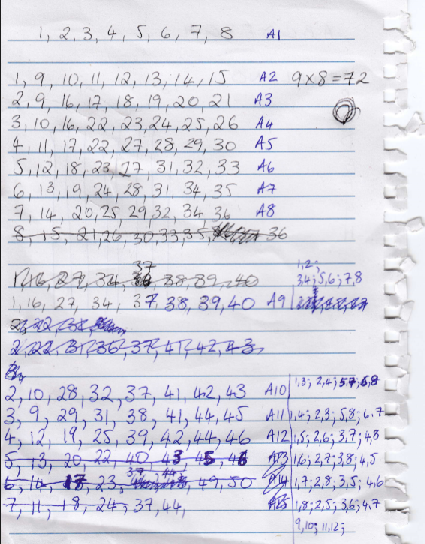 1, 2, 3, 4, 5, 6, 7, 8 A1
1, 9, 10, 11, 12, 13, 14, 15 A2 9x8=72
2, 9, 16, 17, 18, 19, 20, 21 A3
3, 10, 16, 22, 23, 24, 25, 26 A4
4, 11, 17, 22, 27, 28, 29, 30 A5
5, 12, 18, 23, 27, 31, 32, 33 A6
6, 13, 19, 24, 28, 31, 34, 35 A7
7, 14, 20, 25, 29, 32, 34, 36 A8
8, 15, 21, 26, 30, 33, 35, 36
37 1,2;
38, 39, 40 3,4; 5,6; 7,8
1, 16, 27, 34, 37, 38, 39, 40 A9
2, 22, 31, 36, 37, 41, 42, 43
2, 10, 28, 32, 37, 41, 42, 43 A10 1,3; 2,4; 5,7; 6,8
3, 9, 29, 31, 38, 41, 44, 45 A11 1,4; 2,3; 5,8; 6,7
4, 12, 19, 25, 39, 42, 44, 46 A12 1,5; 2,6; 3,7; 4,8
5, 13, 20, 22, 40, 43, 45, 46 A13 1,6; 2,7; 3,8; 4,5
6, 14, 17, 23, 49, 50 A14 1,7; 2,8; 3,5; 4,6
7, 11, 18, 24, 37, 44, 1,8; 2,5; 3,6; 4,7
9,10; 11,12;